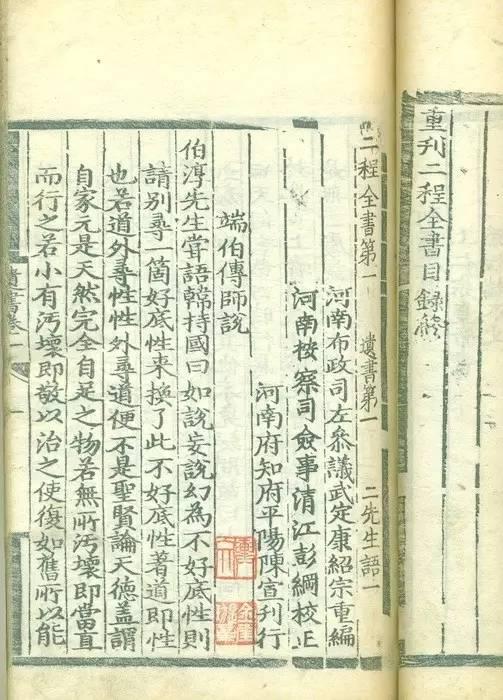 重刊二程全書目錄終
二程全書第一 遺書第一 二先生語一
河南布政司左參議武定康紹宗重編
河南按察司僉事清江彭綱校正
河南府知府平陽陳宣刊行
端伯傳師說
伯淳先生嘗語韓持國曰如說妄說幻為不好底性則
請別尋一箇好底性來換了此不好底性著道即性
也若道外尋性性外尋道便不是聖賢論天德盖謂
自家元是天然完全自足之物若無所汚壞即當直
而行之若小有汚壞即敬以治之使復如舊所以能
遺書卷一